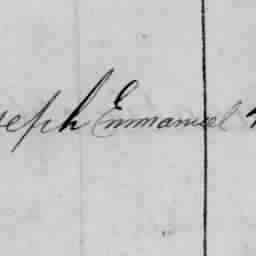 seph Emmanuel